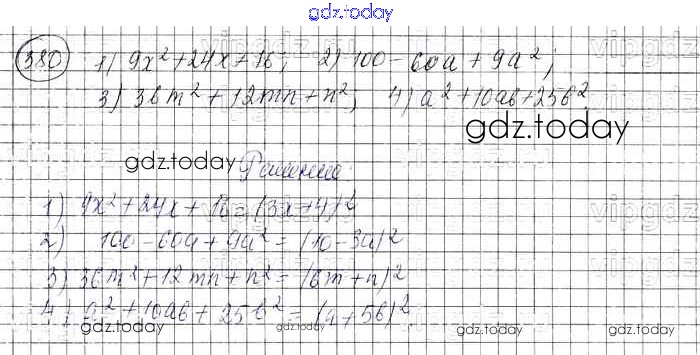 gdz.today
380 1) 9x² + 24x + 16; 2) 100 - 60a + 9a²;
3) 36m² + 12mn + n²; 4) a² + 10ab + 25b²
gdz.today
gdz.today
Решение:
1) 9x² + 24x + 16 = (3x + 4)²
2) 100 - 60a + 9a² = (10 - 3a)²
3) 36m² + 12mn + n² = (6m + n)²
4) a² + 10ab + 25b² = (a + 5b)²
gdz.today gdz.today gdz.today